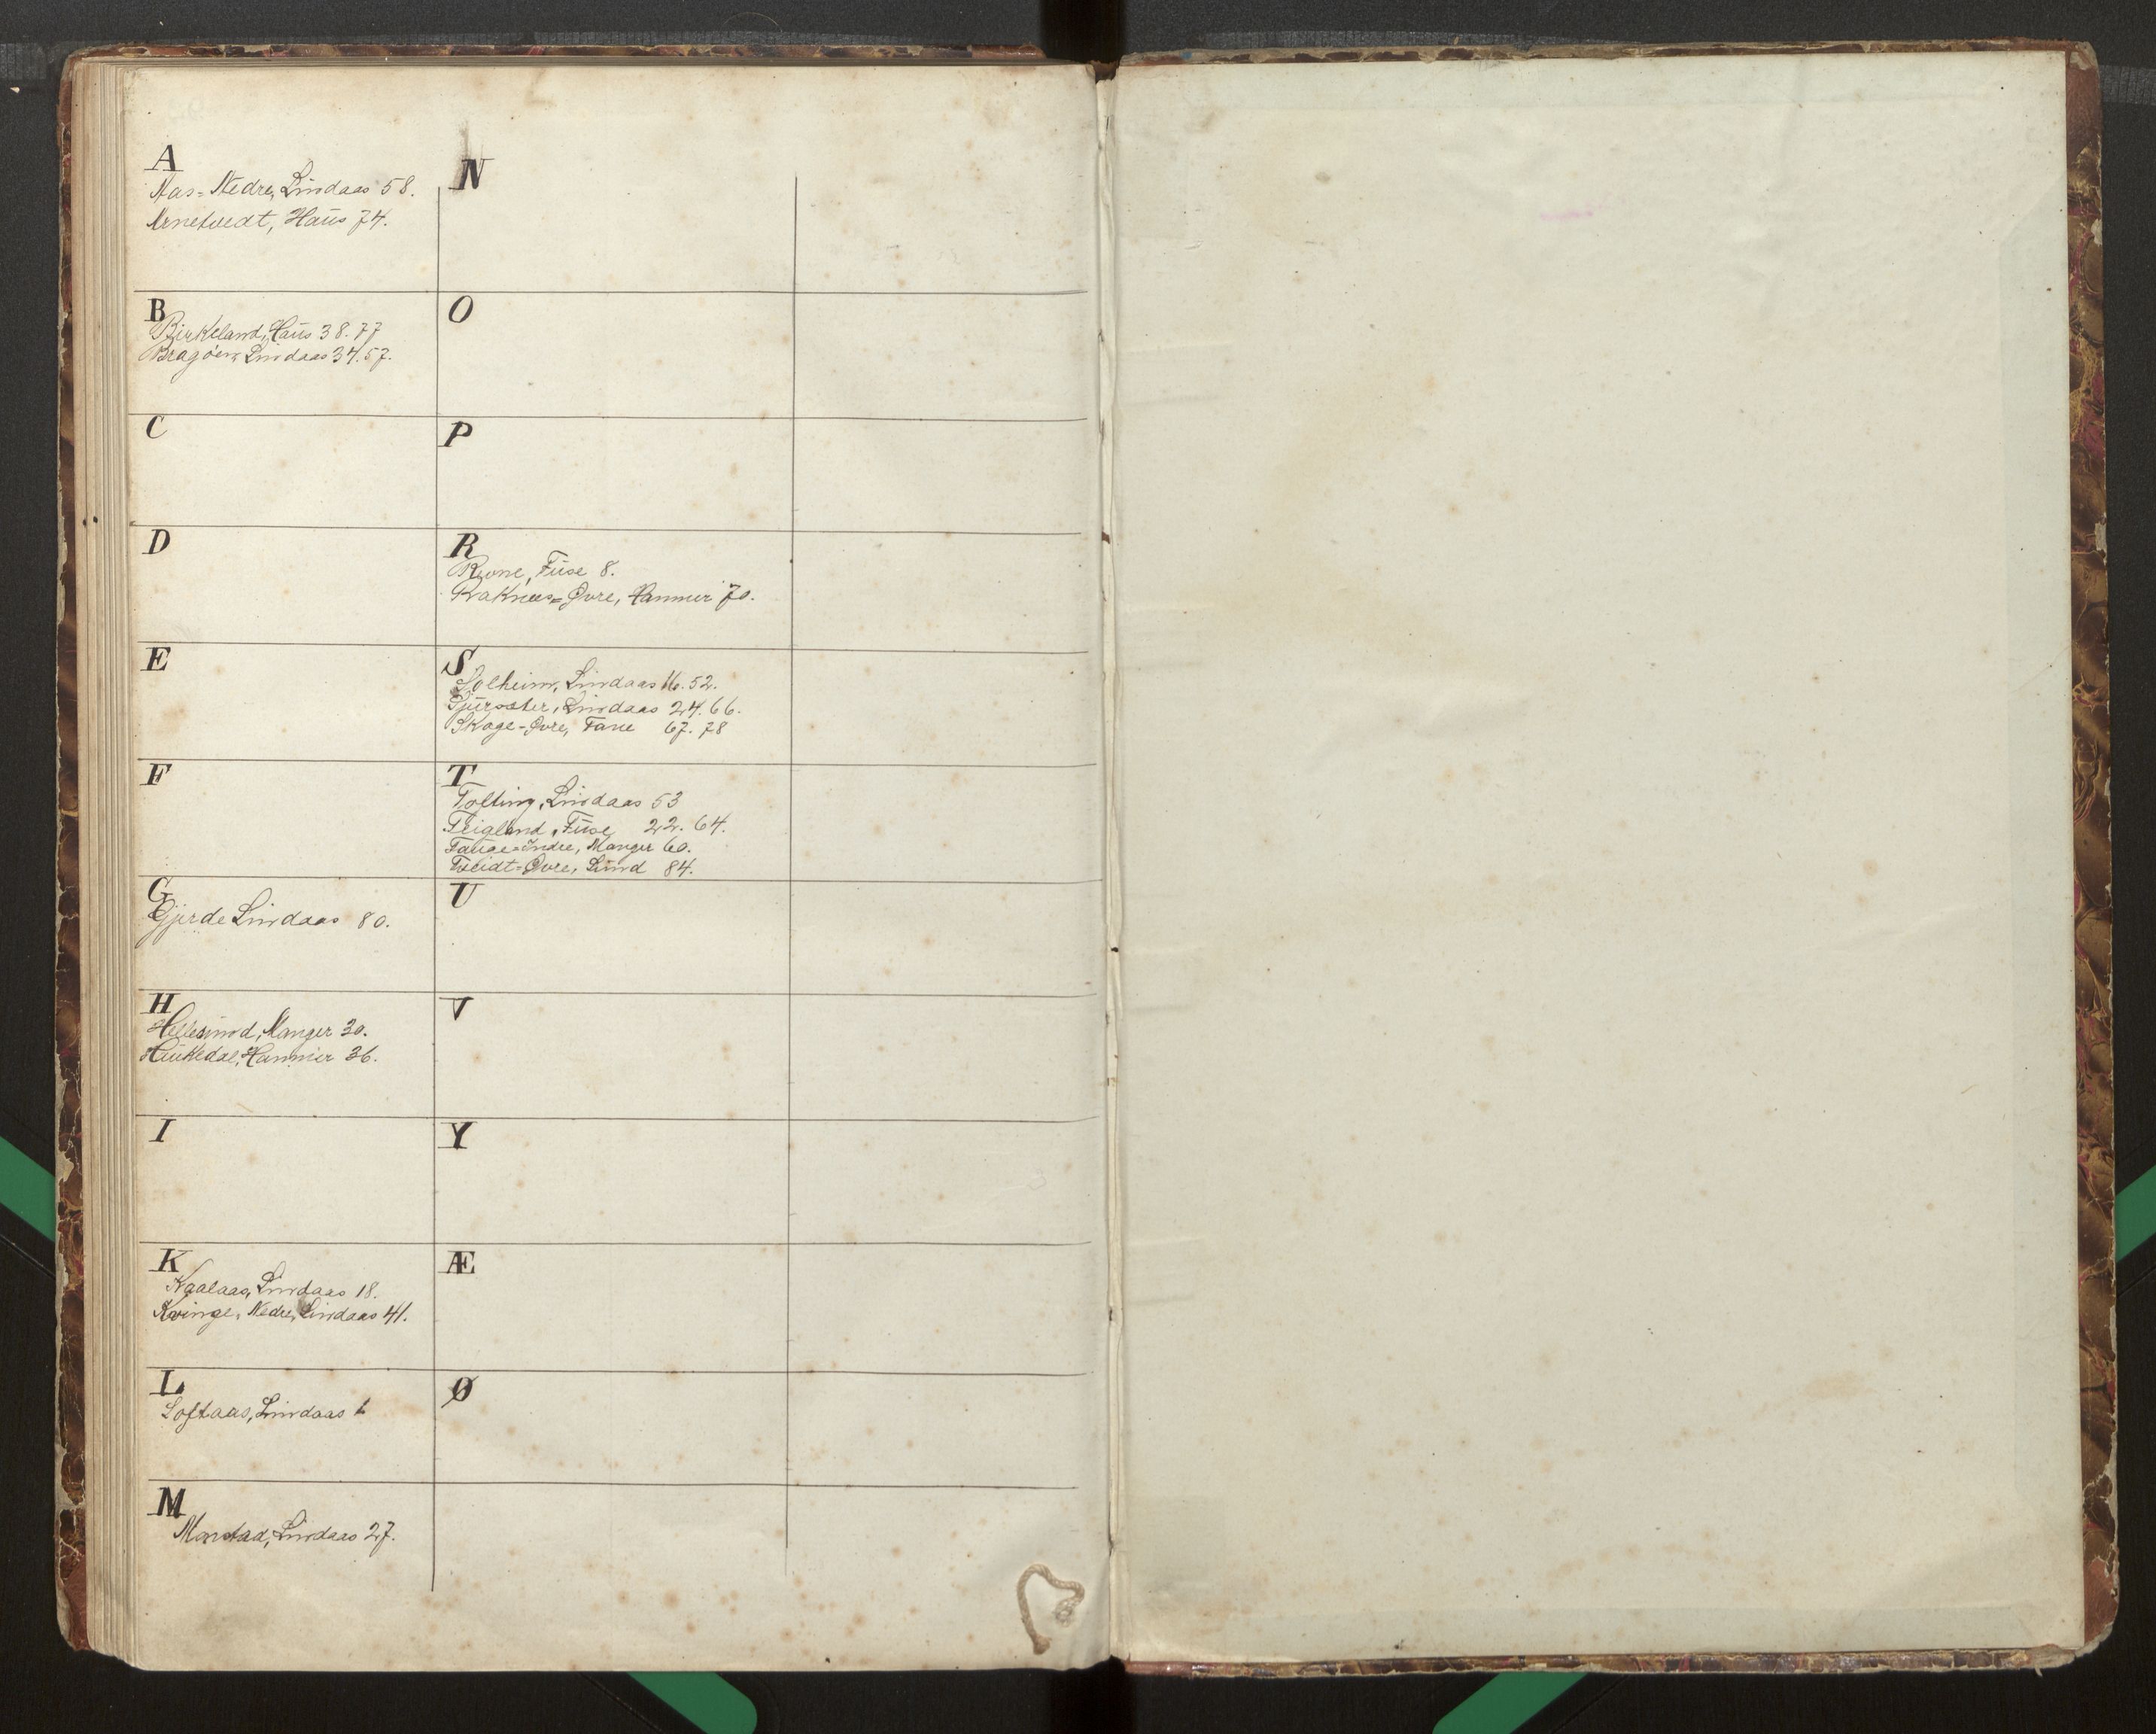 A
Aas=Nedre, Lindaas 58.
Arnetvedt, Haus 74.
B
Birkeland, Haus 38. 77
Bragøen, Lindaas 34. 57.
C
D
E
F
G
Gjerde Lindaas 80.
H
Hellesund, Manger 30.
Haukedal, Hammer 36.
I
K
Kaalaas, Lindaas 18.
Kvinge, Nedre, Lindaas 41.
L
Loftaas, Lindaas 1
M
Monstad, Lindaas 27.
N
O
P
R
Revne, Fuse 8.
Raknes=Øvre, Hammer 70.
S
Solheim, Lindaas 16. 52.
Sjursæter, Lindaas 24. 66.
Skage-Øvre, Fane 67. 78
T
Tofting, Lindaas 53
Teigland, Fuse 22. 64.
Tauge=Indre, Manger 60.
Tveidt=Øvre, Sund 84.
U
V
Y
Æ
Ø